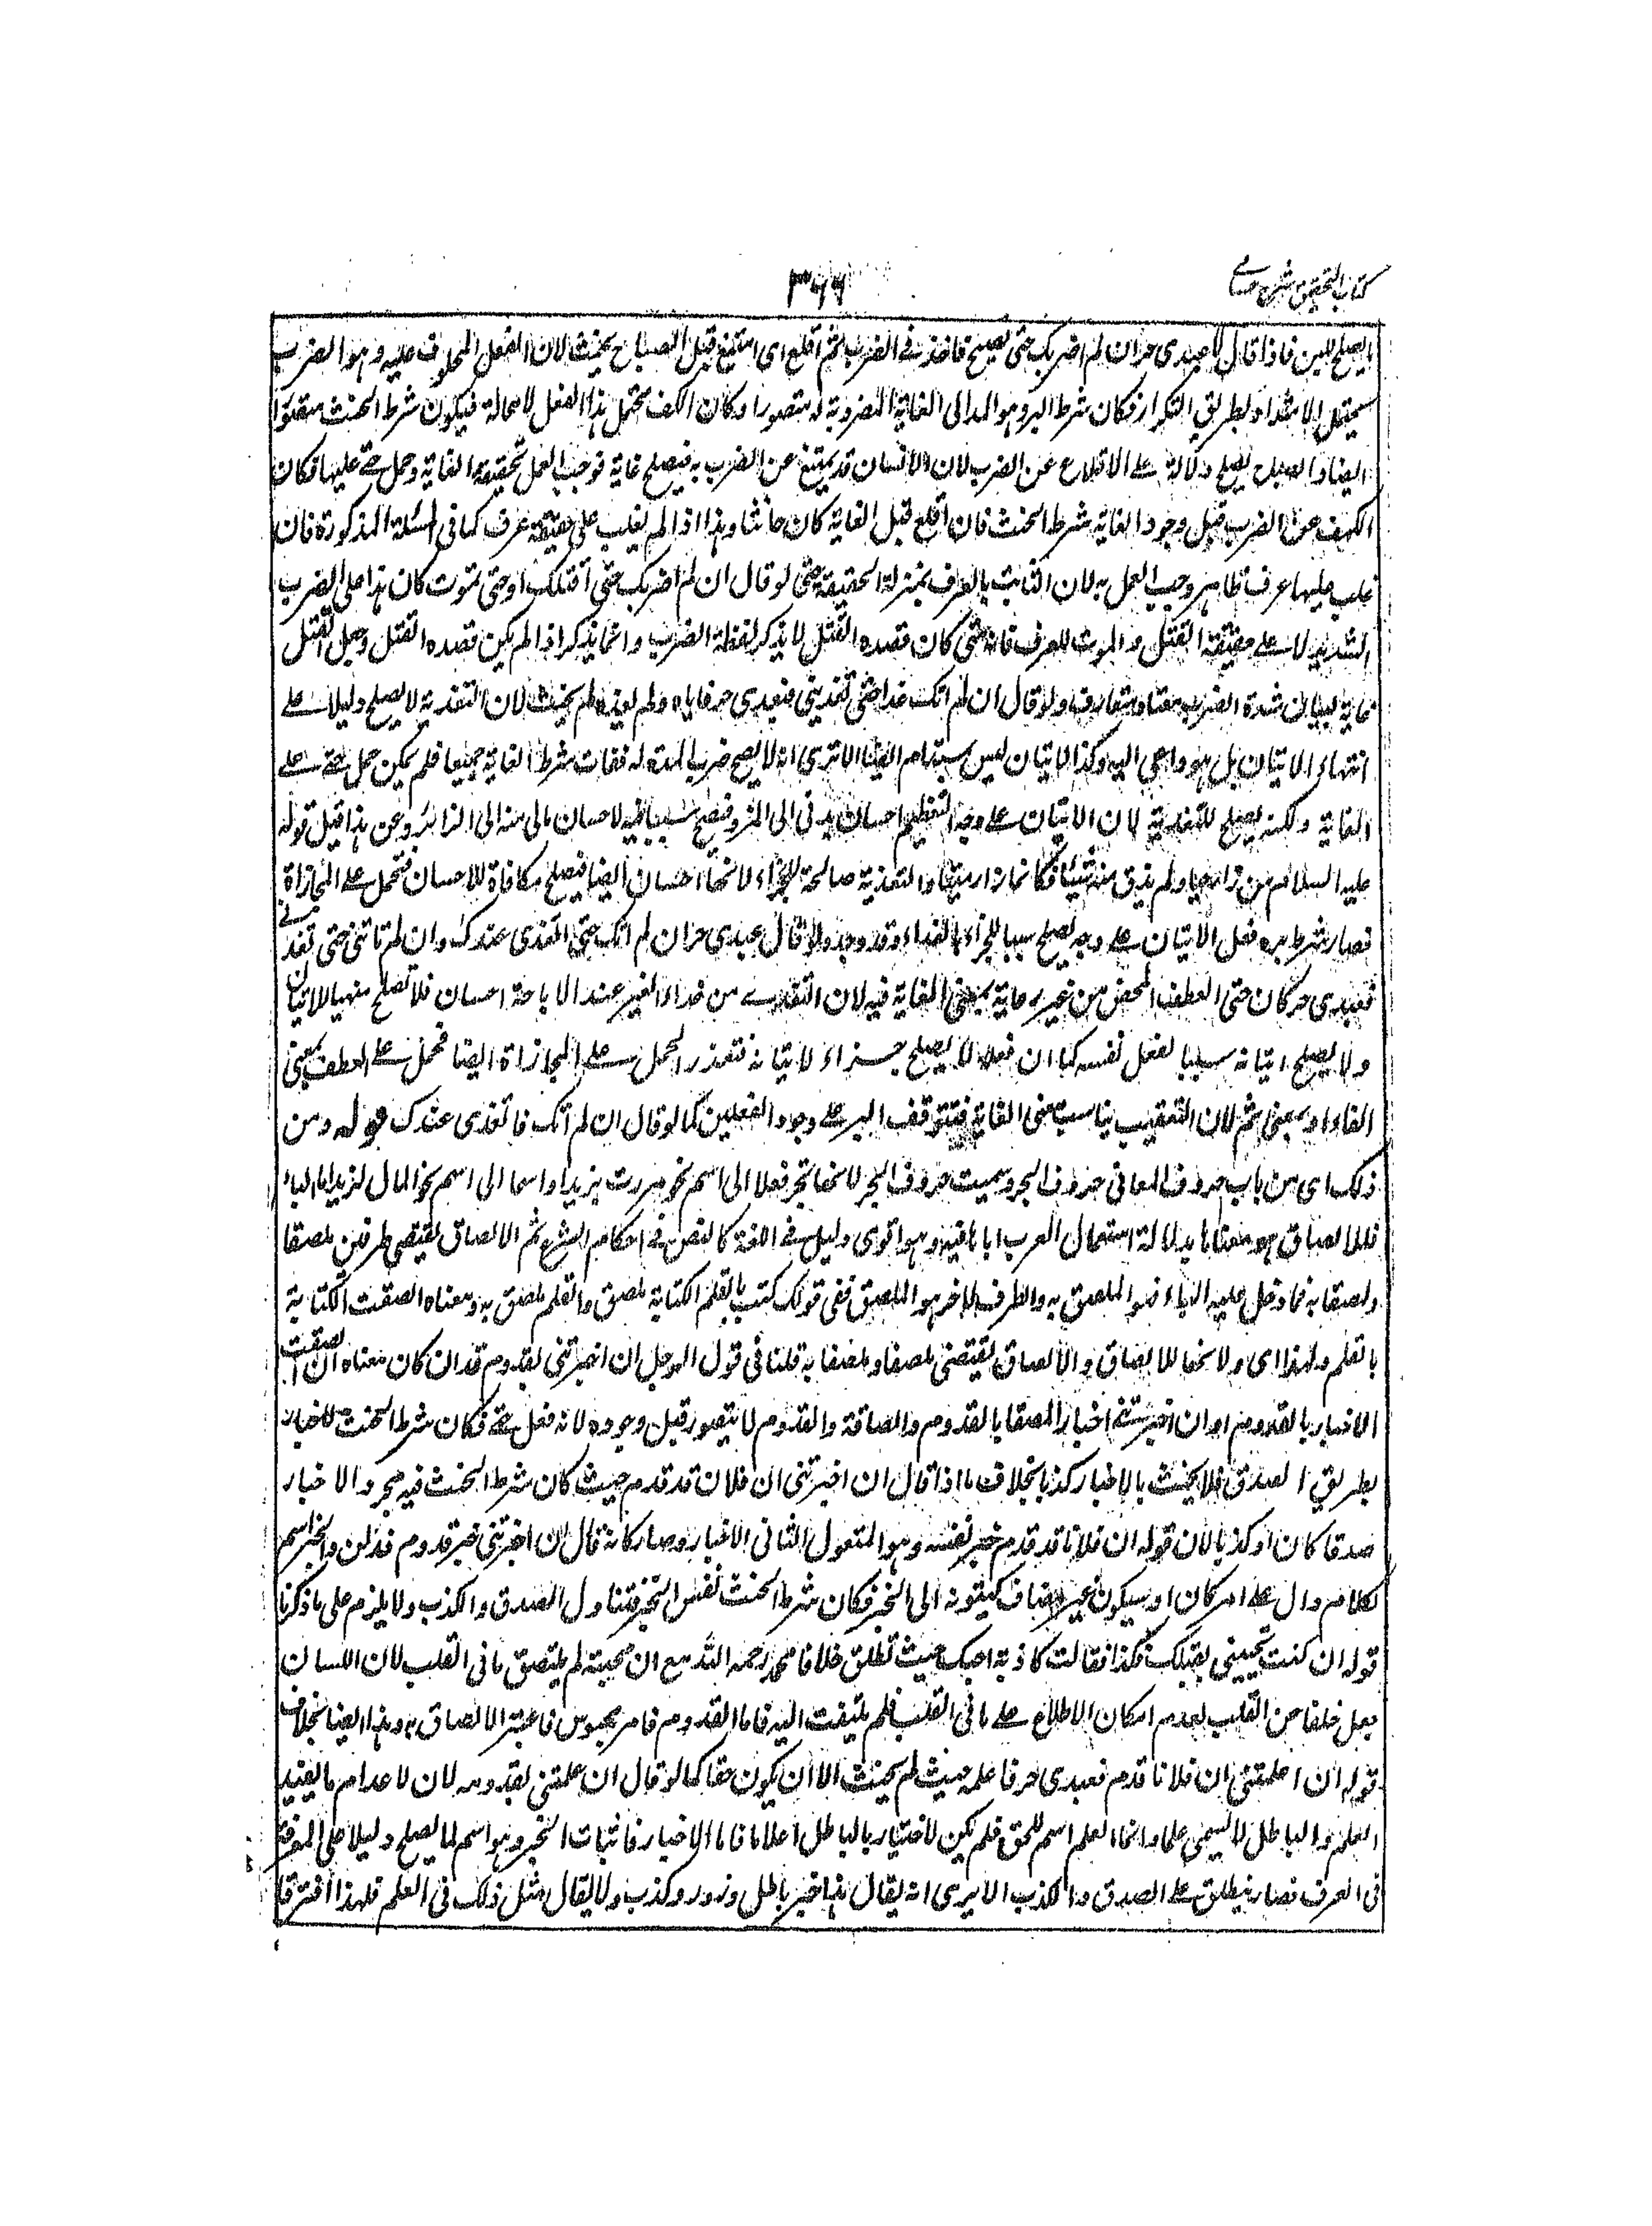 كتاب التحقيق شرح حسامى
٣٦٦
ما يصلح لليمين فاذا قال عبدى حر ان لم اضربك حتى تصيح فاخذ فى الضرب ثم اقلع اى امتنع قبل الصياح يحنث لان الفعل المحلوف عليه وهو الضرب
يحتمل الامتداد بطريق التكرار فكان شرط البر وهو المد الى الغاية المضروبة له متصورا وكان الكف محتمل هذا الفعل لا محالة فيكون شرط الحنث متصورا
ايضا والصياح يصلح دلالة على الاقلاع عن الضرب لان الانسان قد يمتنع عن الضرب به فيصلح غاية فوجب العمل بحقيقة الغاية وحمل حتى عليها فكان
الكف عن الضرب قبل وجود الغاية شرط الحنث فان اقلع قبل الغاية كان حانثا وهذا اذا لم يغلب على حقيقة عرف كما فى المسئلة المذكورة فان
غلب عليها عرف ظاهر وجب العمل به لان الثابت بالعرف بمنزلة الحقيقة حتى لو قال ان لم اضربك حتى اقتلك او حتى تموت كان هذا على الضرب
الشديد لا على حقيقة القتل والموت للعرف فانه متى كان قصده القتل لا يذكر لفظة الضرب وانما يذكر اذا لم يكن قصده القتل وجعل القتل
غاية لبيان شدة الضرب معتاد متعارف ولو قال ان لم اتك غدا حتى تغدينى فعبدى حر فاتاه ولم يغده لم يحنث لان التغدية لا يصلح دليلا على
انتهاء الاتيان بل هو داعى اليه وكذا الاتيان ليس بمستدام ايضا الا ترى انه لا يصح ضرب المدة له ففات شرط الغاية جميعا فلم يمكن حمل حتى على
الغاية ولكنه يصلح للتغدية لان الاتيان على وجه التعظيم احسان بدنى الى المزور فيصلح سببا لاحسان مالى منه الى الزائر وعن هذا قيل قوله
عليه السلام من زار حيا ولم يذق منه شيئا فكانما زار ميتا والتغدية صالحة للجزاء لانها احسان ايضا فيصلح مكافاة للاحسان فتحمل على المجازاة
فصار شرط بره فعل الاتيان على وجه يصلح سببا للجزاء بالغداء وقد وجد ولو قال عبدى حر ان لم اتك حتى اتغدى عندك وان لم تاتنى حتى تغدى
فعبدى حر كان حتى للعطف المحض من غير رعاية بمعنى الغاية فيه لان التغدى من غداء الغير عند الاباحة احسان فلا تصلح منهيا للاتيان
ولا يصلح اتيانه سببا لفعل نفسه كما ان فعله لا يصلح جزاء لاتيانه فتعذر الحمل على المجازاة ايضا فحمل على العطف بمعنى
الفاء او بمعنى ثم لان التعقيب يناسب معنى الغاية فتتوقف البر على وجود الفعلين كما لو قال ان لم اتك فاتغدى عندك قوله ومن
ذلك اى من باب حروف المعانى حروف الجر وسميت حروف الجر لانها تجر فعلا الى اسم نحو مررت بزيد او اسما الى اسم نحو المال لزيد اما الباء
فللالصاق هو معناها بدلالة استعمال العرب اياها فيه وهو اقوى دليل فى اللغة كالنص فى احكام الشرع ثم الالصاق يقتضى طرفين ملصقا
وملصقا به فما دخل عليه الباء فهو الملصق به والطرف الاخر هو الملصق ففى قولك كتبت بالقلم الكتابة ملصق والقلم ملصق به ومعناه الصقت الكتابة
بالقلم ولهذا اى ولانها للالصاق والالصاق يقتضى ملصقا وملصقا به قلنا فى قول الرجل ان اخبرتنى بقدوم فلان كان معناه ان الصقت
الاخبار بالقدوم او ان اخبرتنى اخبارا ملصقا بالقدوم والصاقه والقدوم لا يتصور قبل وجوده لانه فعل حسى فكان شرط الحنث الاخبار
بطريق الصدق فلا يحنث بالاخبار كذبا بخلاف ما اذا قال ان اخبرتنى ان فلان قد قدم حيث كان شرط الحنث فيه مجرد الاخبار
صدقا كان او كذبا لان قوله ان فلانا قد قدم خبر بنفسه وهو المفعول الثانى للاخبار وصار كانه قال ان اخبرتنى خبر قدوم فلان والخبر اسم
لكلام دال على امر كان او سيكون غير مضاف كينونته الى الخبر فكان شرط الحنث نفس الخبر فتناول الصدق والكذب ولا يلزم على ما ذكرنا
قوله ان كنت تحبينى بقلبك فكذا فقالت كاذبة احبك حيث تطلق خلافا لمحمد رحمه الله مع ان محبته لم يلتصق ما فى القلب لان اللسان
جعل خلفا عن القلب لعدم امكان الاطلاع على ما فى القلب فلم يلتفت اليه فاما القدوم فامر محسوس فاعتبر الالصاق به وهذا ايضا بخلاف
قوله ان اعلمتنى ان فلانا قدم فعبدى حر فاعلمه حيث لم يحنث الا ان يكون حقا كما لو قال ان اعلمتنى بقدومه لان الاعلام ما يفيد
العلم والباطل لا يسمى علما وانما العلم اسم للحق فلم يكن الاخبار بالباطل اعلاما فاما الاخبار فاثبات الخبر وهو اسم لما يصلح دليلا على المعرفة
فى العرف فصار ينطلق على الصدق والكذب الا يرى انه يقال هذا خبر باطل وزور وكذب ولا يقال مثل ذلك فى العلم فلهذا افترقا